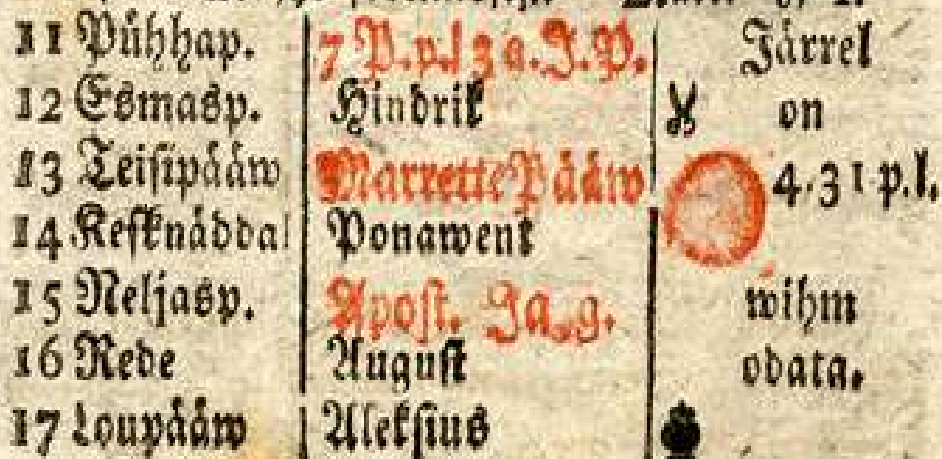 11 Pühhap. 7 P. p. l 3 a. J. P. Järrel
12 Esmasp. Hindrik on
13 Teisipääw Marrette Pääw 4. 31 p. l.
14 Kesknäddal Ponawent
15 Neljasp. Apost. Jag. wihm
16 Rede August odata.
17 Loupääw Aleksius